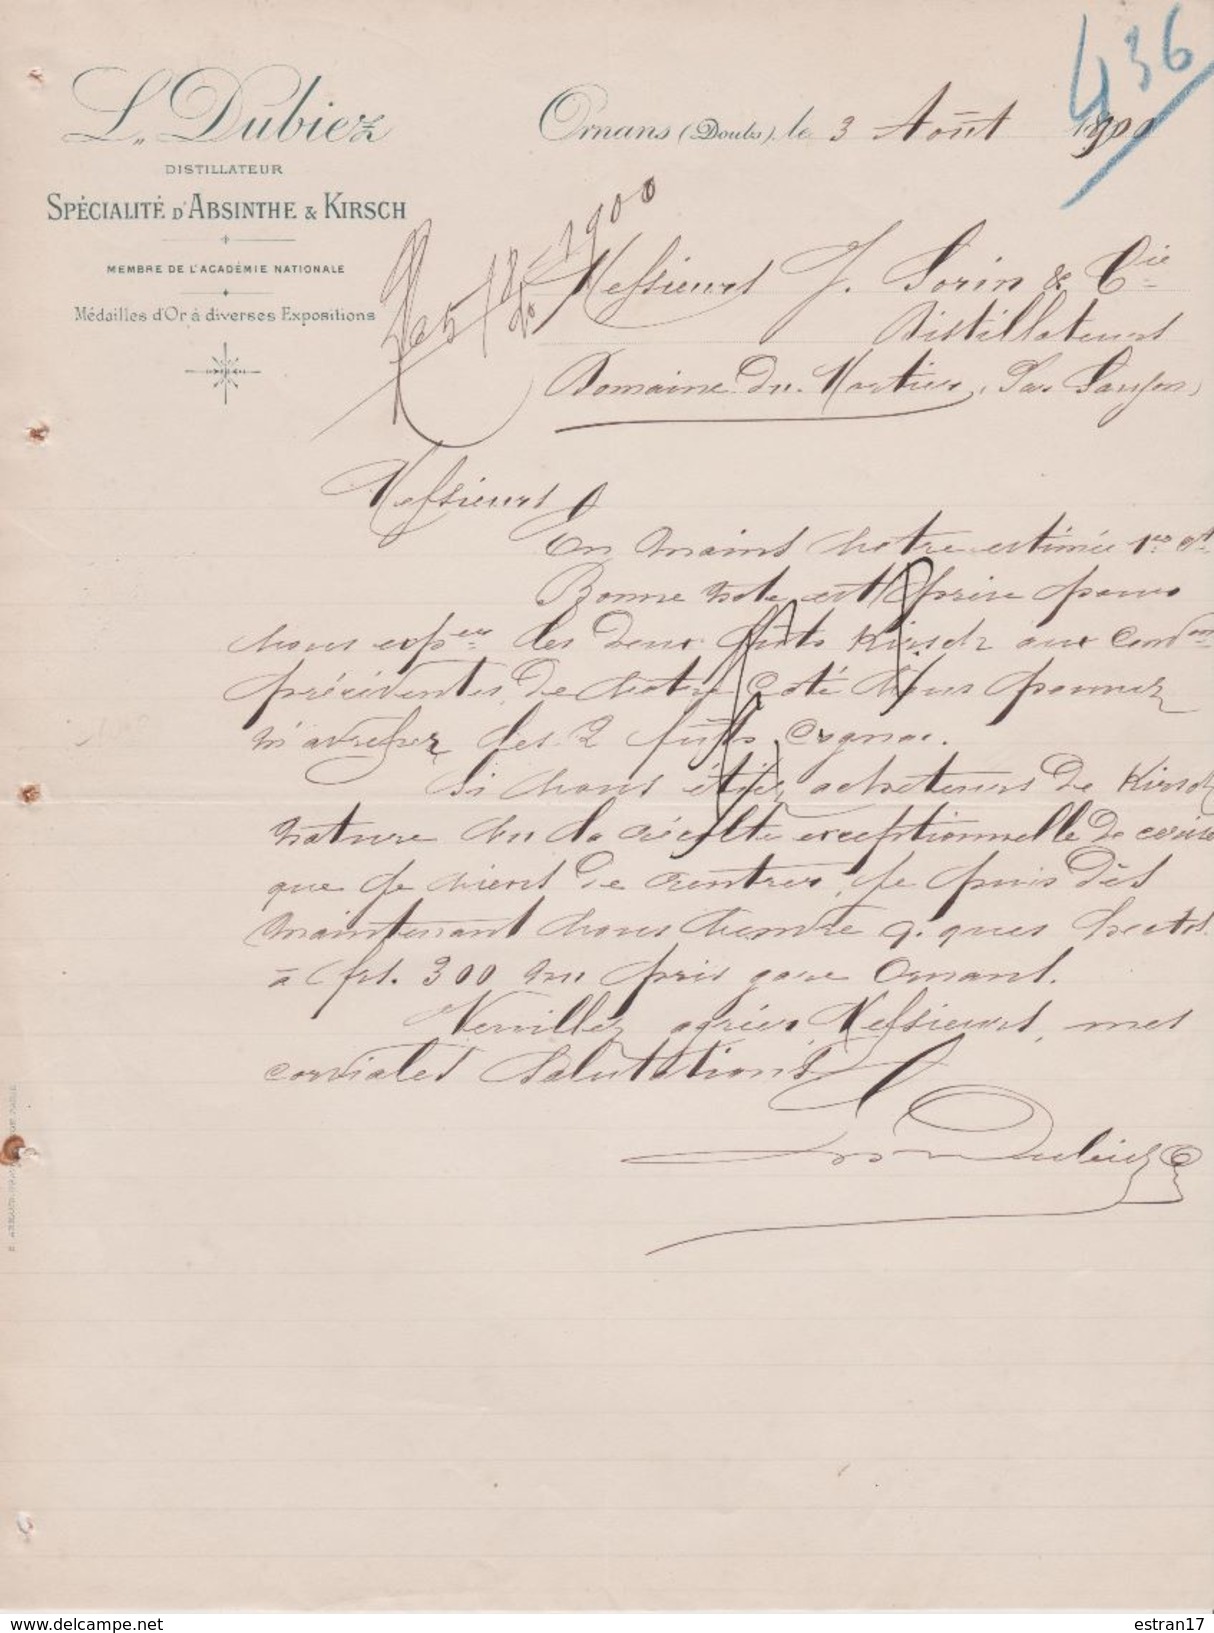 436
L. Dubiez
DISTILLATEUR
SPÉCIALITÉ D'ABSINTHE & KIRSCH
MEMBRE DE L'ACADÉMIE NATIONALE
Médailles d'Or à diverses Expositions
Ornans (Doubs), le 3 Août 1900
Messieurs J. Sorin & Cie
Distillateurs
Domaine du Mortier, Par Saujon,
Messieurs
En mains votre estimée 1er ct
Bonne note est prise pour
vous exper les deux fûts Kirsch aux condons
précédentes, de votre coté vous pouvez
m'adresser les 2 fûts Cognac.
Si vous étiez acheteurs de Kirsch
nature vu la récolte exceptionnelle de cerises
que je viens de rentrer, je puis dès
maintenant vous vendre q. ques hectol.
à frs. 300 nu pris gare Ornans.
Veuillez agréer, Messieurs, mes
cordiales salutations
Dubiez
delcampe.net
estran17